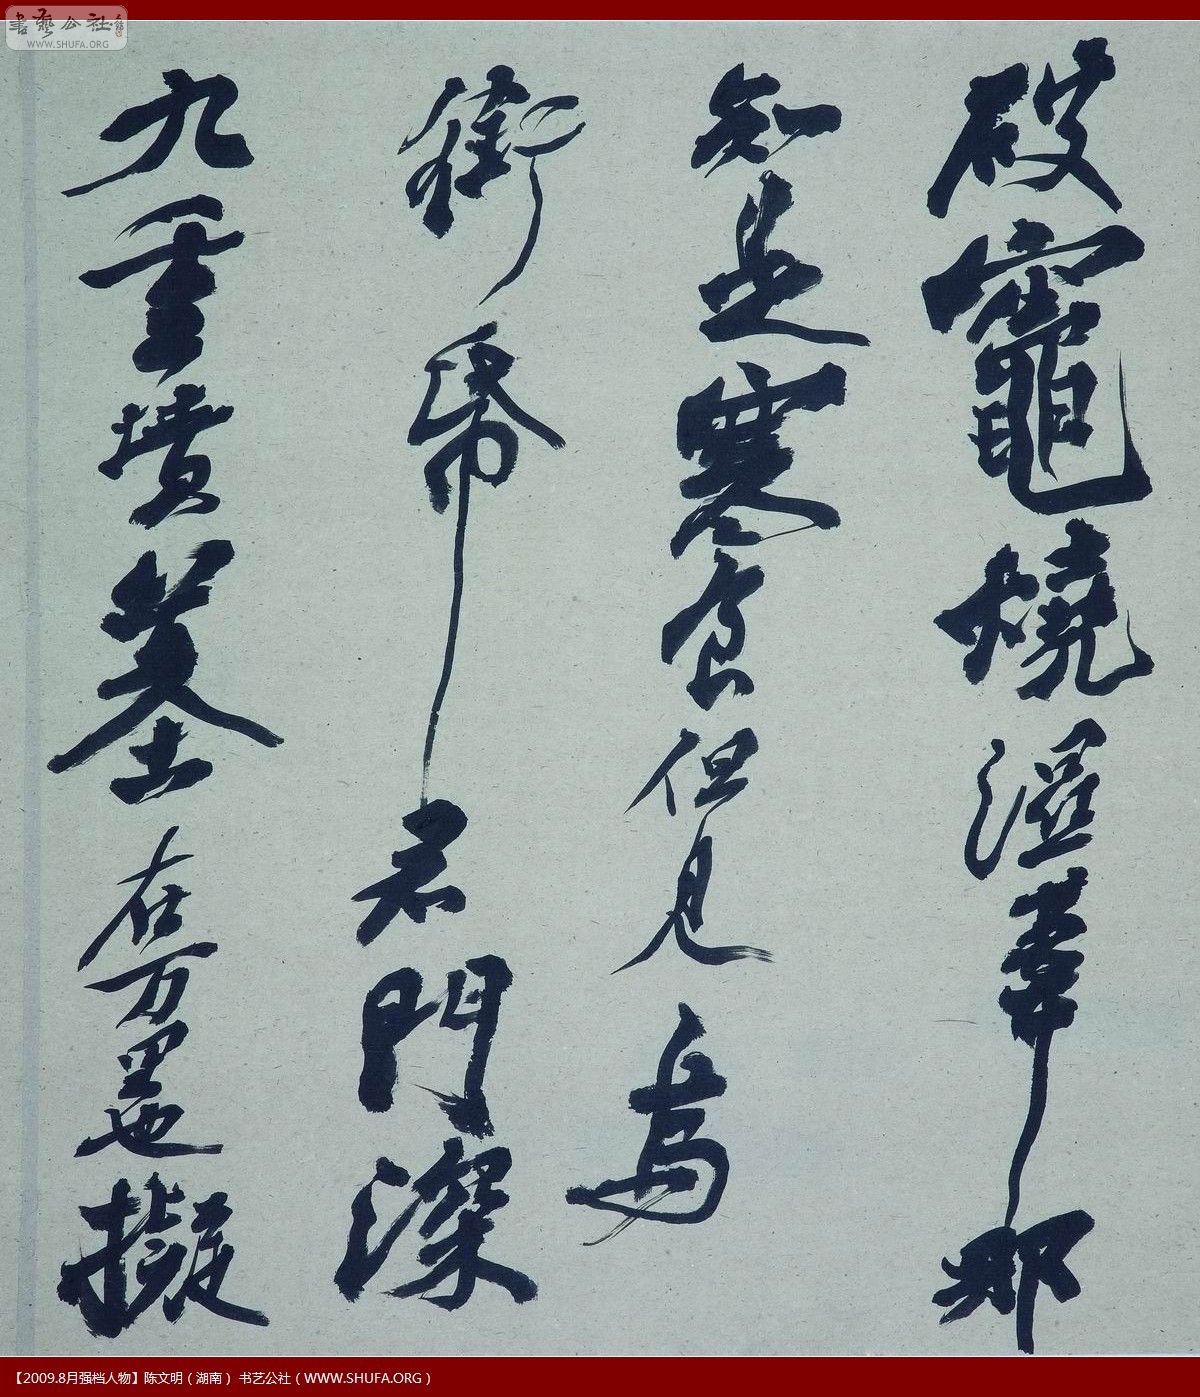 書藝公社
WWW.SHUFA.ORG
破竈燒濕葦那
知是寒食但見烏
銜帋君門深
九重墳墓在万里也擬
【2009.8月强档人物】陈文明（湖南） 书艺公社（WWW.SHUFA.ORG）